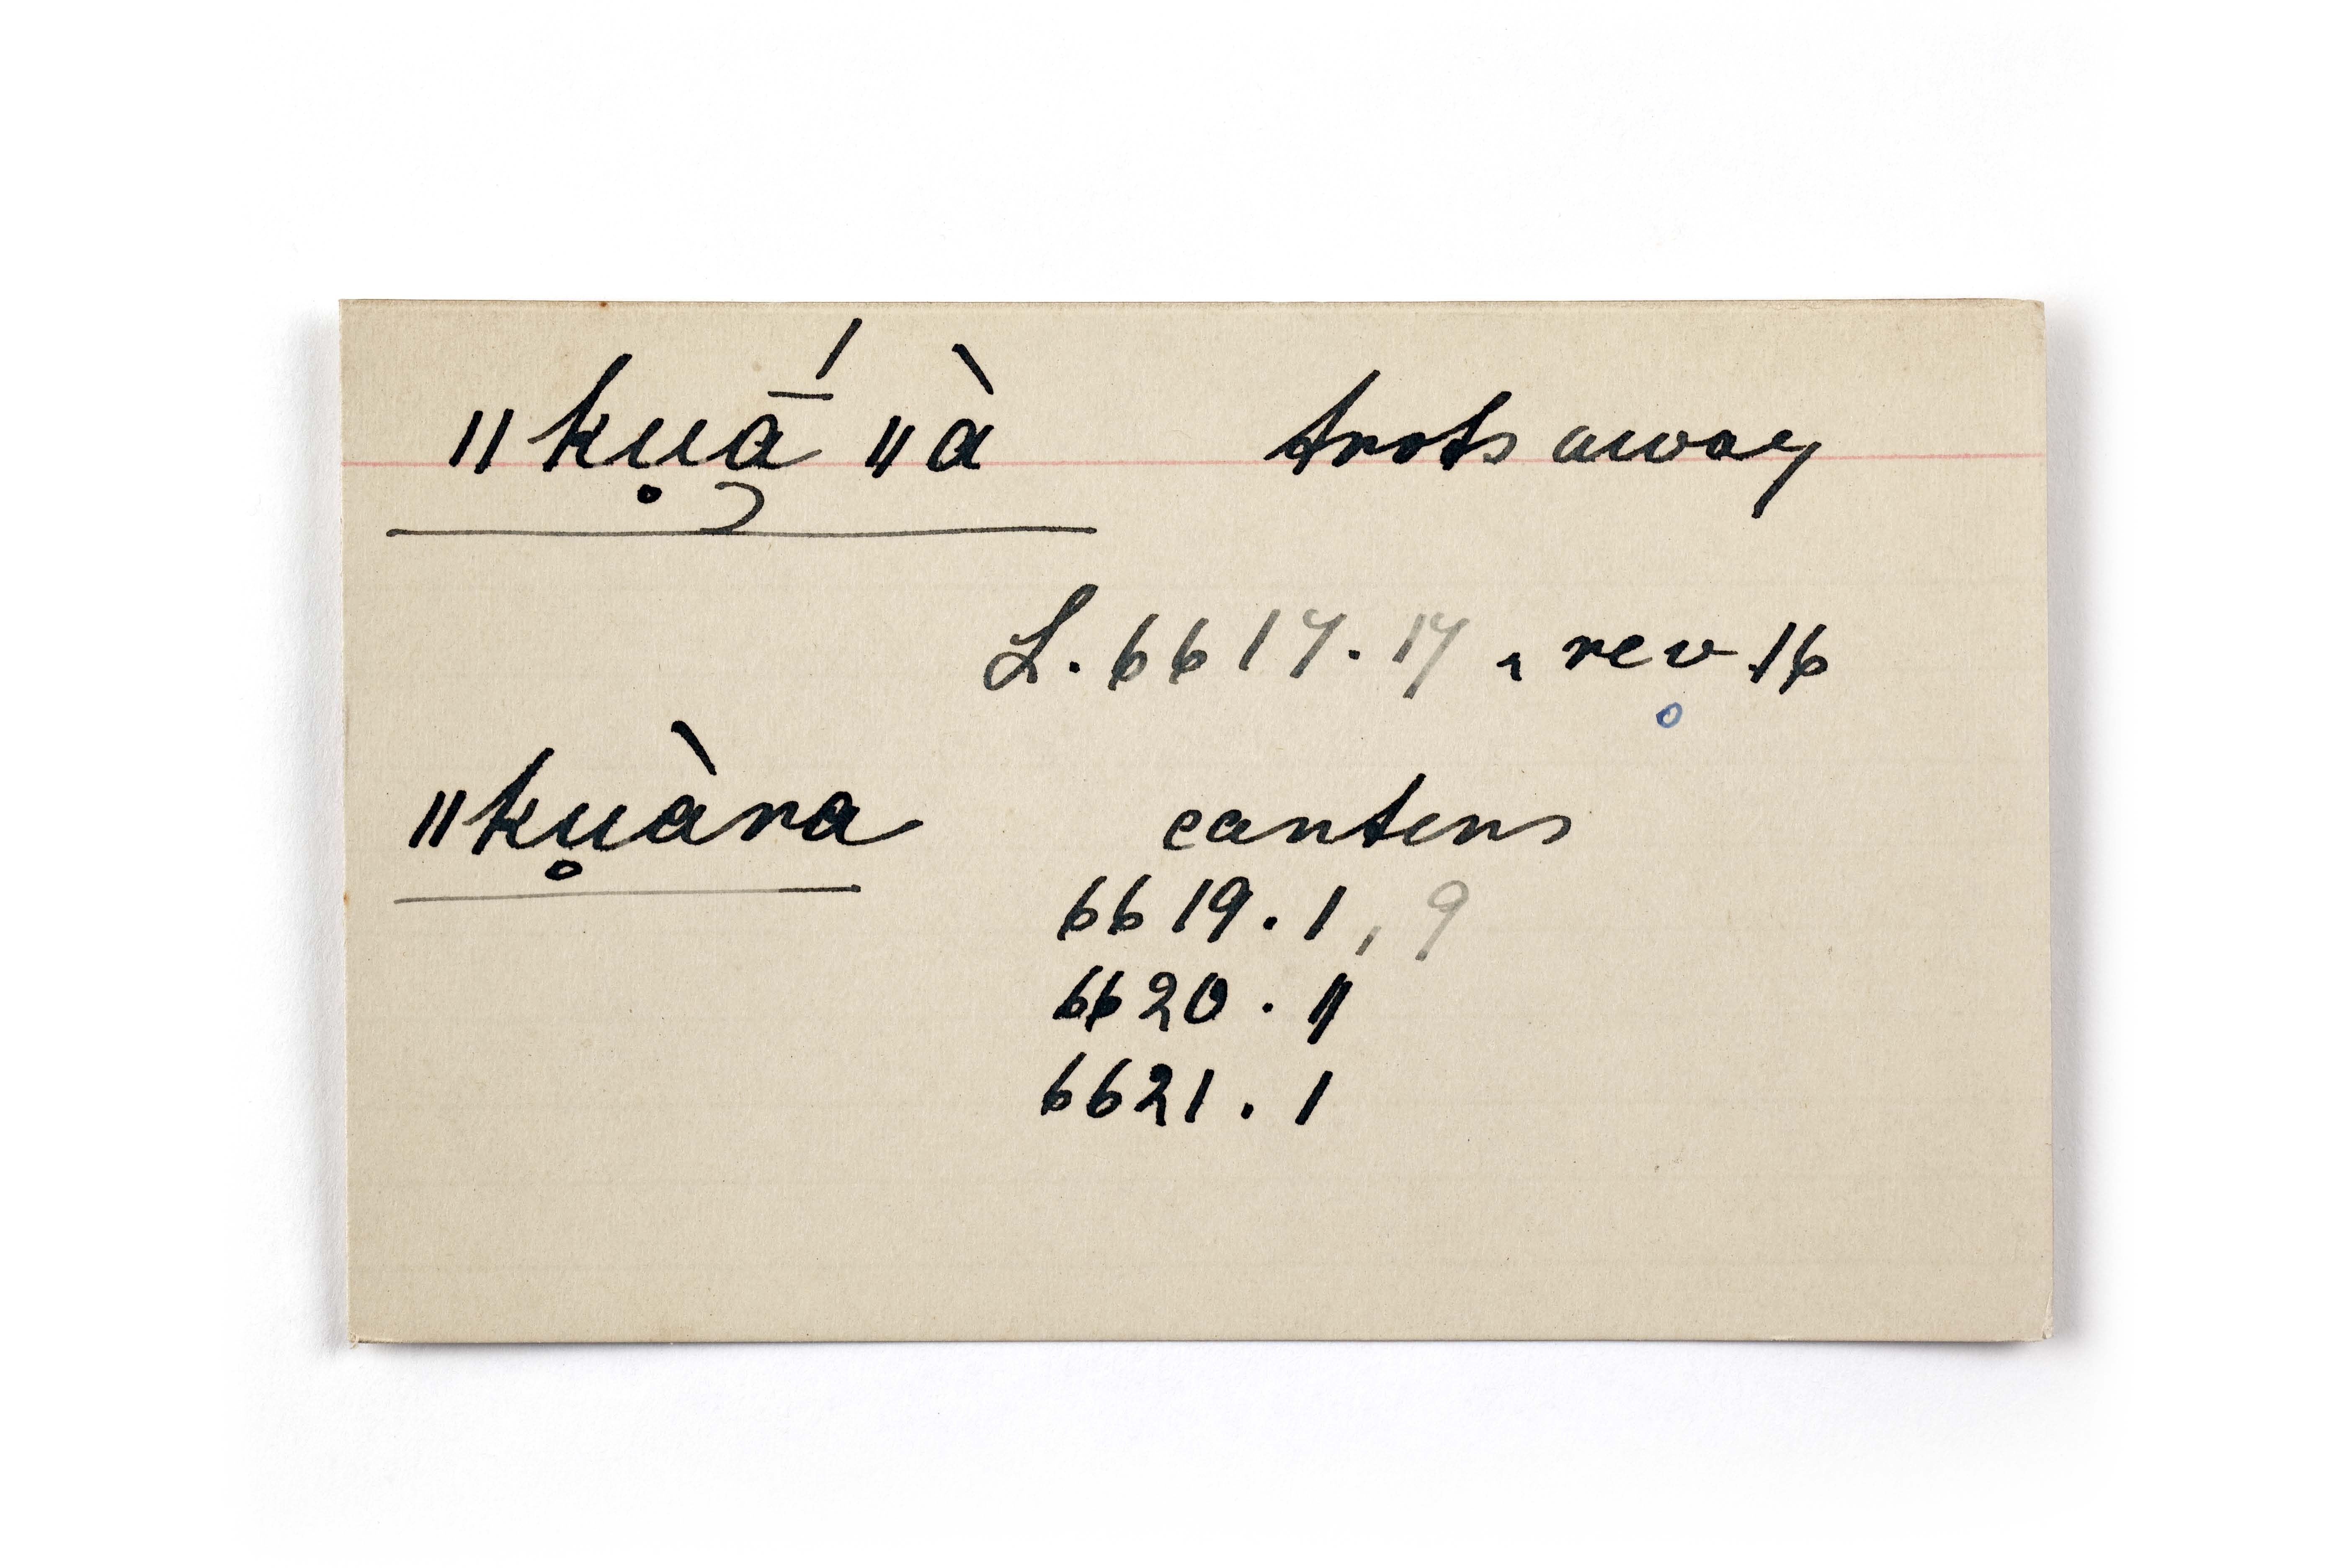 ǁku̥ā̯́ ǁà trots away
L. 6617. 17, rev. 16
ǁku̥àra canters
6619. 1, 9
6620. 11
6621. 1